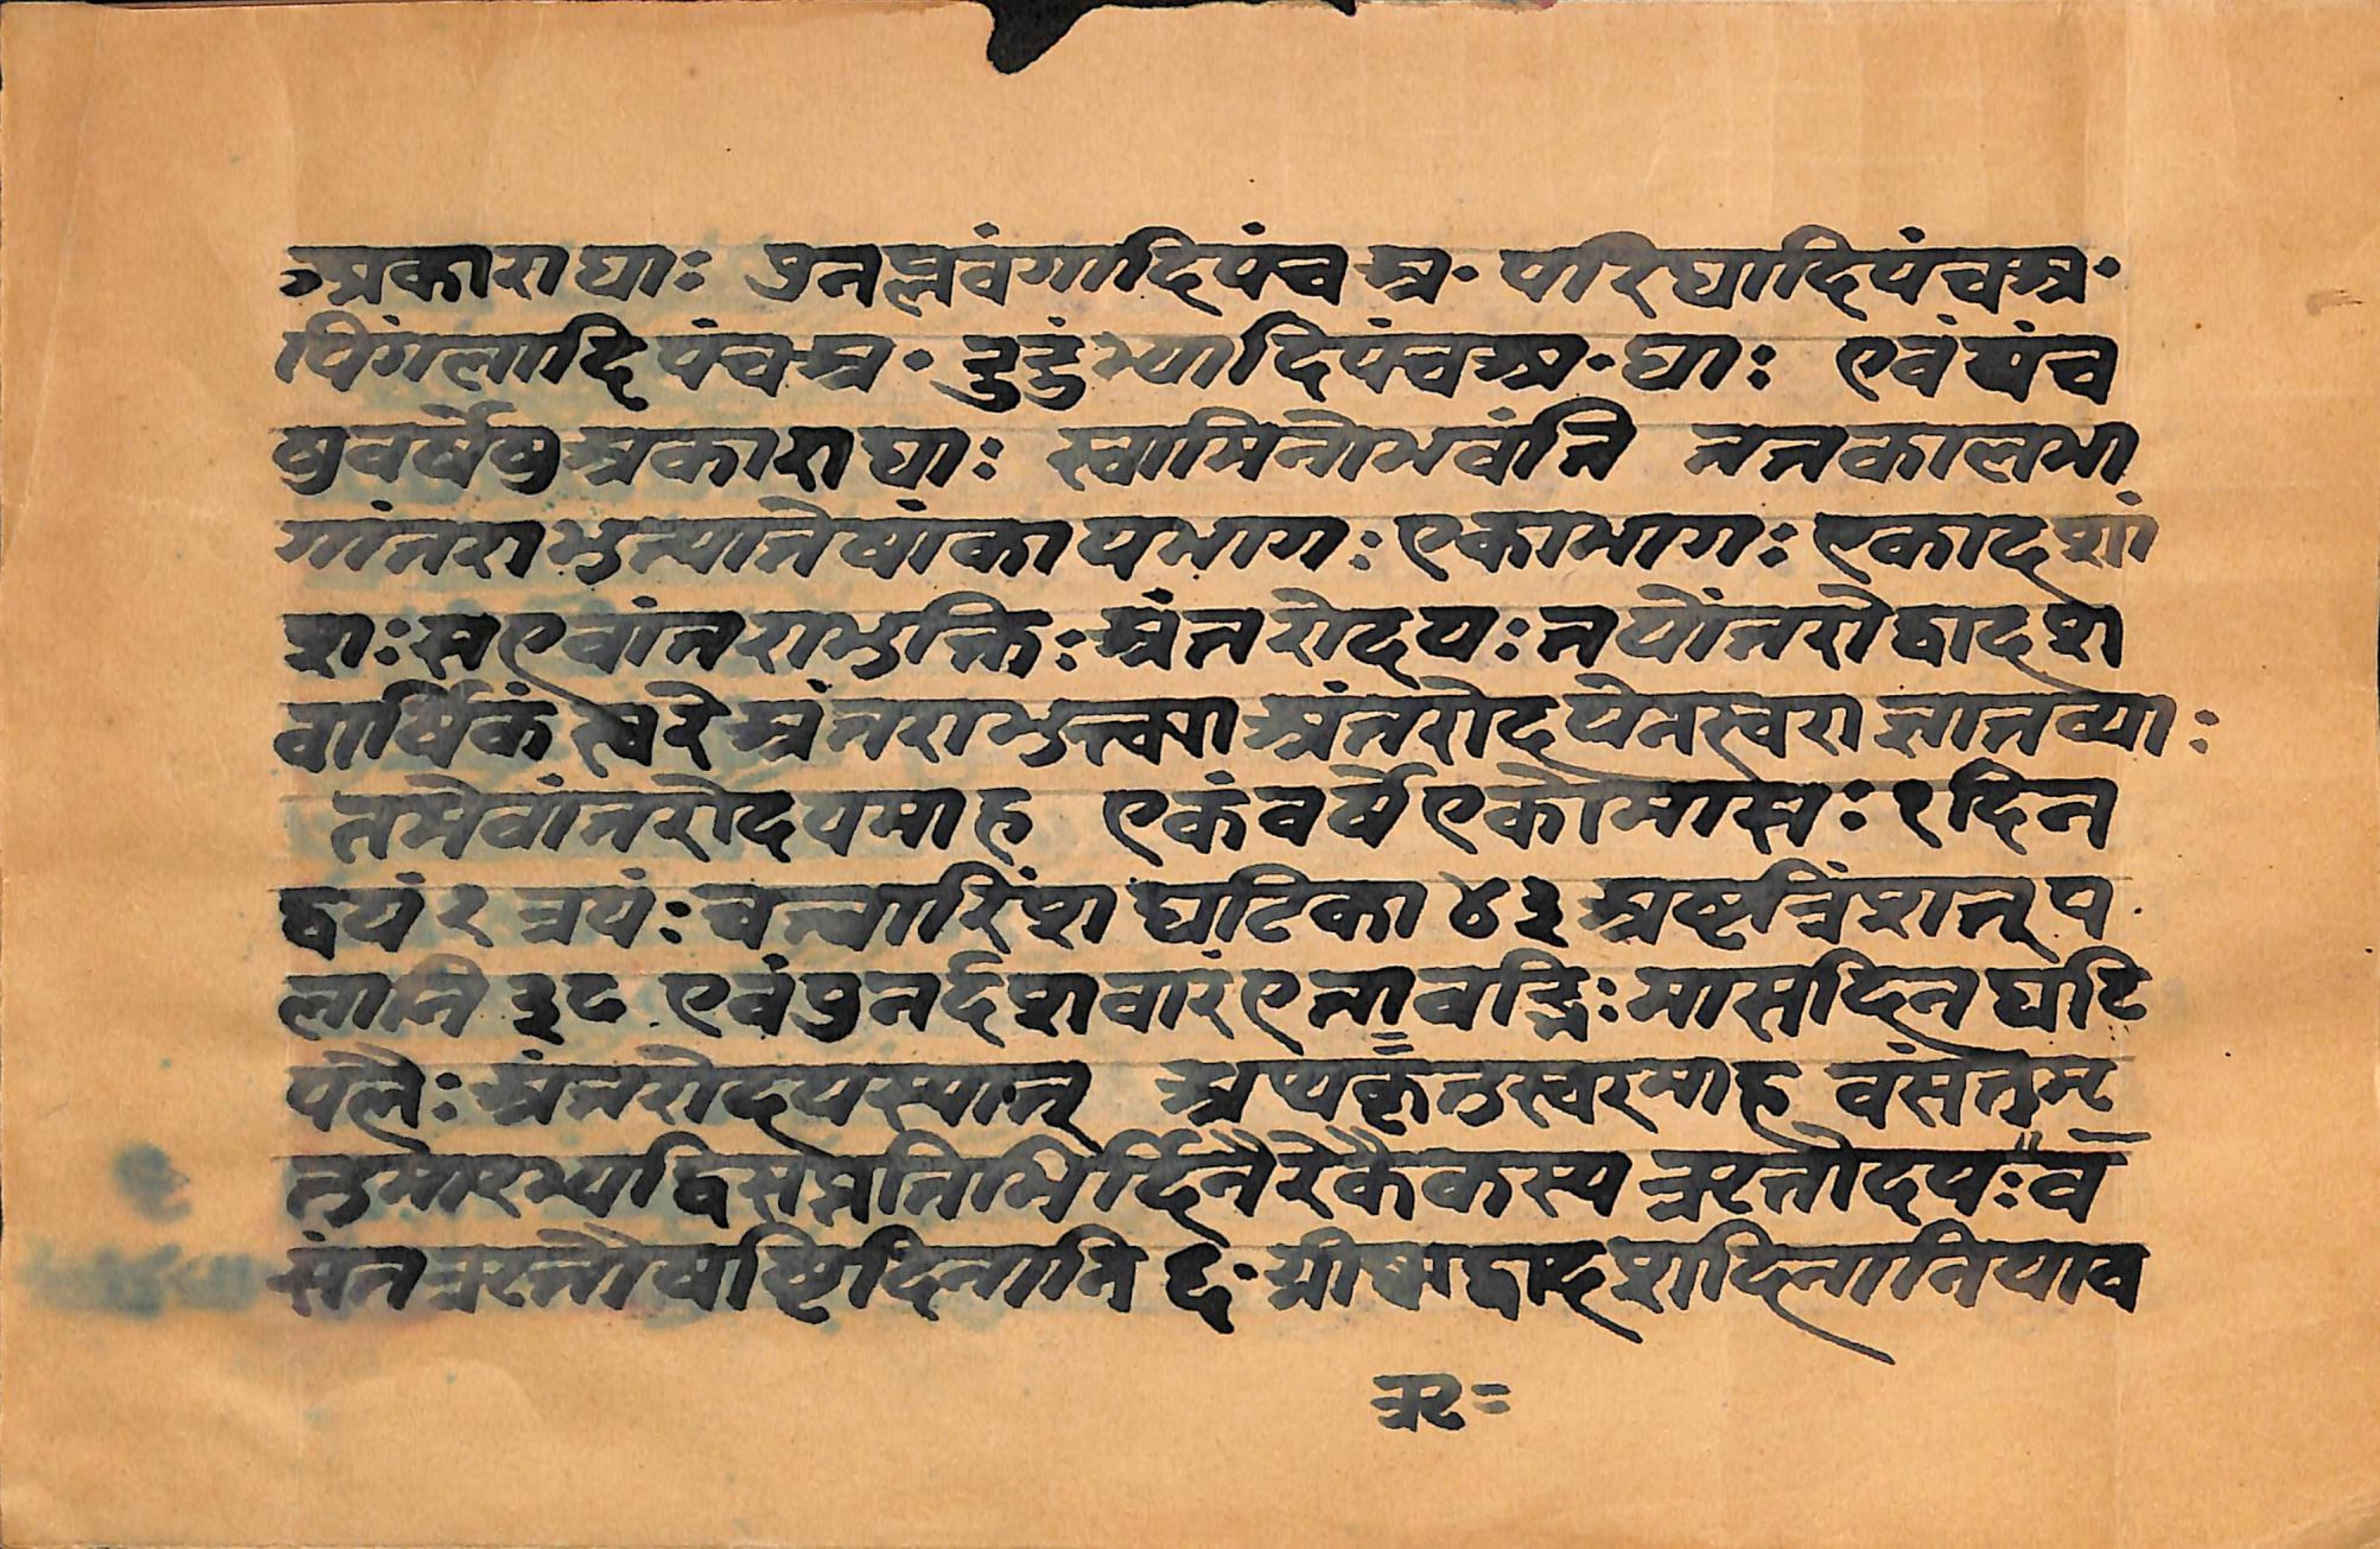 अकाराद्याः पुनल्पवंगादिपंच अ॰ परिघादिपंचअ॰
पिंगलादिपंचअ॰ दुदुंभ्यादिपंचअ॰द्याः एवं पंच
षुवर्षेषुअकाराद्याः स्वामिनोभवंति ततकालभा
गांतराभुत्यातेषांकायभागः एकाभागः एकादशां
शः सएवांतराभुक्तिः अंतरोदयः तयोंतरोद्वादश
वार्षिकं स्वरे अंतराभुक्त्या अंतरोदयेनस्वराज्ञातव्याः
तमेवांतरोदयमाह एकंवर्षेएकोमासः १दिन
द्वयं २ त्रयंः चत्वारिंश घटिका ४३ अष्टत्रिंशत् प
लानि ३८ एवंपुनर्दशवारंएतावद्भिः मासदिनघटि
पलैः अंतरोदयस्यात् अथऋतुस्वरमाह वंसंतमृ
तुमारभ्यद्विसप्ततिभिर्दिनैरेकैकस्य ऋतोदयः व
संतऋतौषष्टिदिनानि ६॰ ग्रीष्मद्वादशदिनानियाव
ऋ=